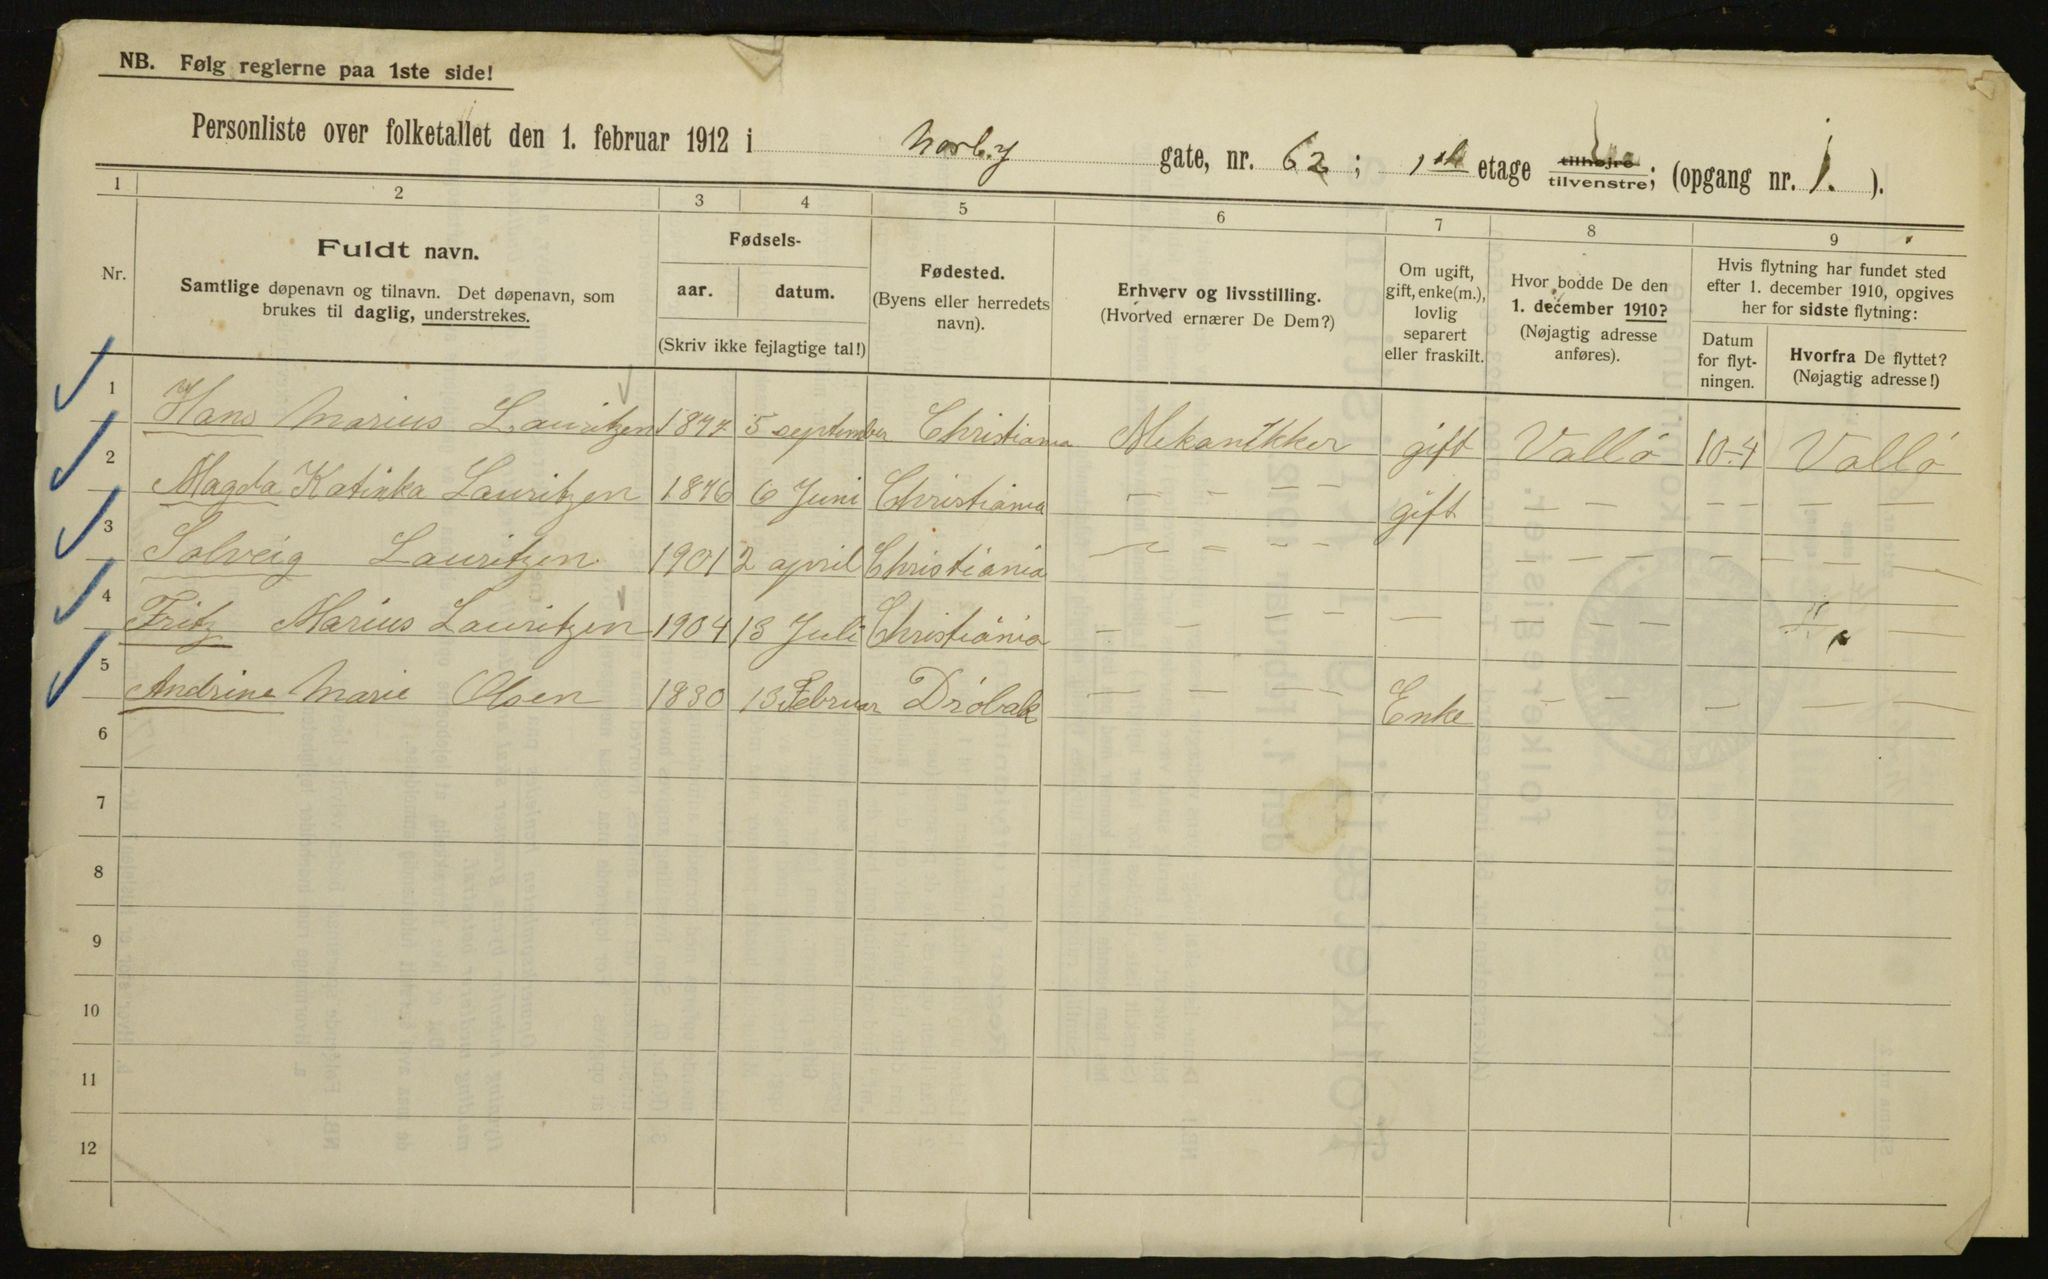 NB. Følg reglerne paa 1ste side!
Personliste over folketallet den 1. februar 1912 i Norby gate, nr. 62; 1ste etage tilhøjre tilvenstre; (opgang nr. 1. ).
1 2 3 4 5 6 7 8 9
Nr.
Fuldt navn.
Samtlige døpenavn og tilnavn. Det døpenavn, som
brukes til daglig, understrekes.
Fødsels-
aar. datum.
(Skriv ikke fejlagtige tal!)
Fødested.
(Byens eller herredets
navn).
Erhverv og livsstilling.
(Hvorved ernærer De Dem?)
Om ugift,
gift, enke(m.),
lovlig
separert
eller fraskilt.
Hvor bodde De den
1. december 1910?
(Nøjagtig adresse
anføres).
Hvis flytning har fundet sted
efter 1. december 1910, opgives
her for sidste flytning:
Datum
for flyt-
ningen.
Hvorfra De flyttet?
(Nøjagtig adresse!)
1 Hans Marius Lauritzen 5 september Christiania Mekanikker gift Vallö 10-4 Vallö
2 Magda Katinka Lauritzen 1876 6 Juni Christiania — — — — gift — — — — — — —
3 Solveig Lauritzen 1901 2 april Christiania — — — — — — — — — — —
4 Fritz Marius Lauritzen 1904 13 Juli Christiania — — — — — — — — — —
5 Andrine Marie Olsen 1830 13 Februar Dröbak — — — — Enke — — — — — —
6
7
8
9
10
11
12